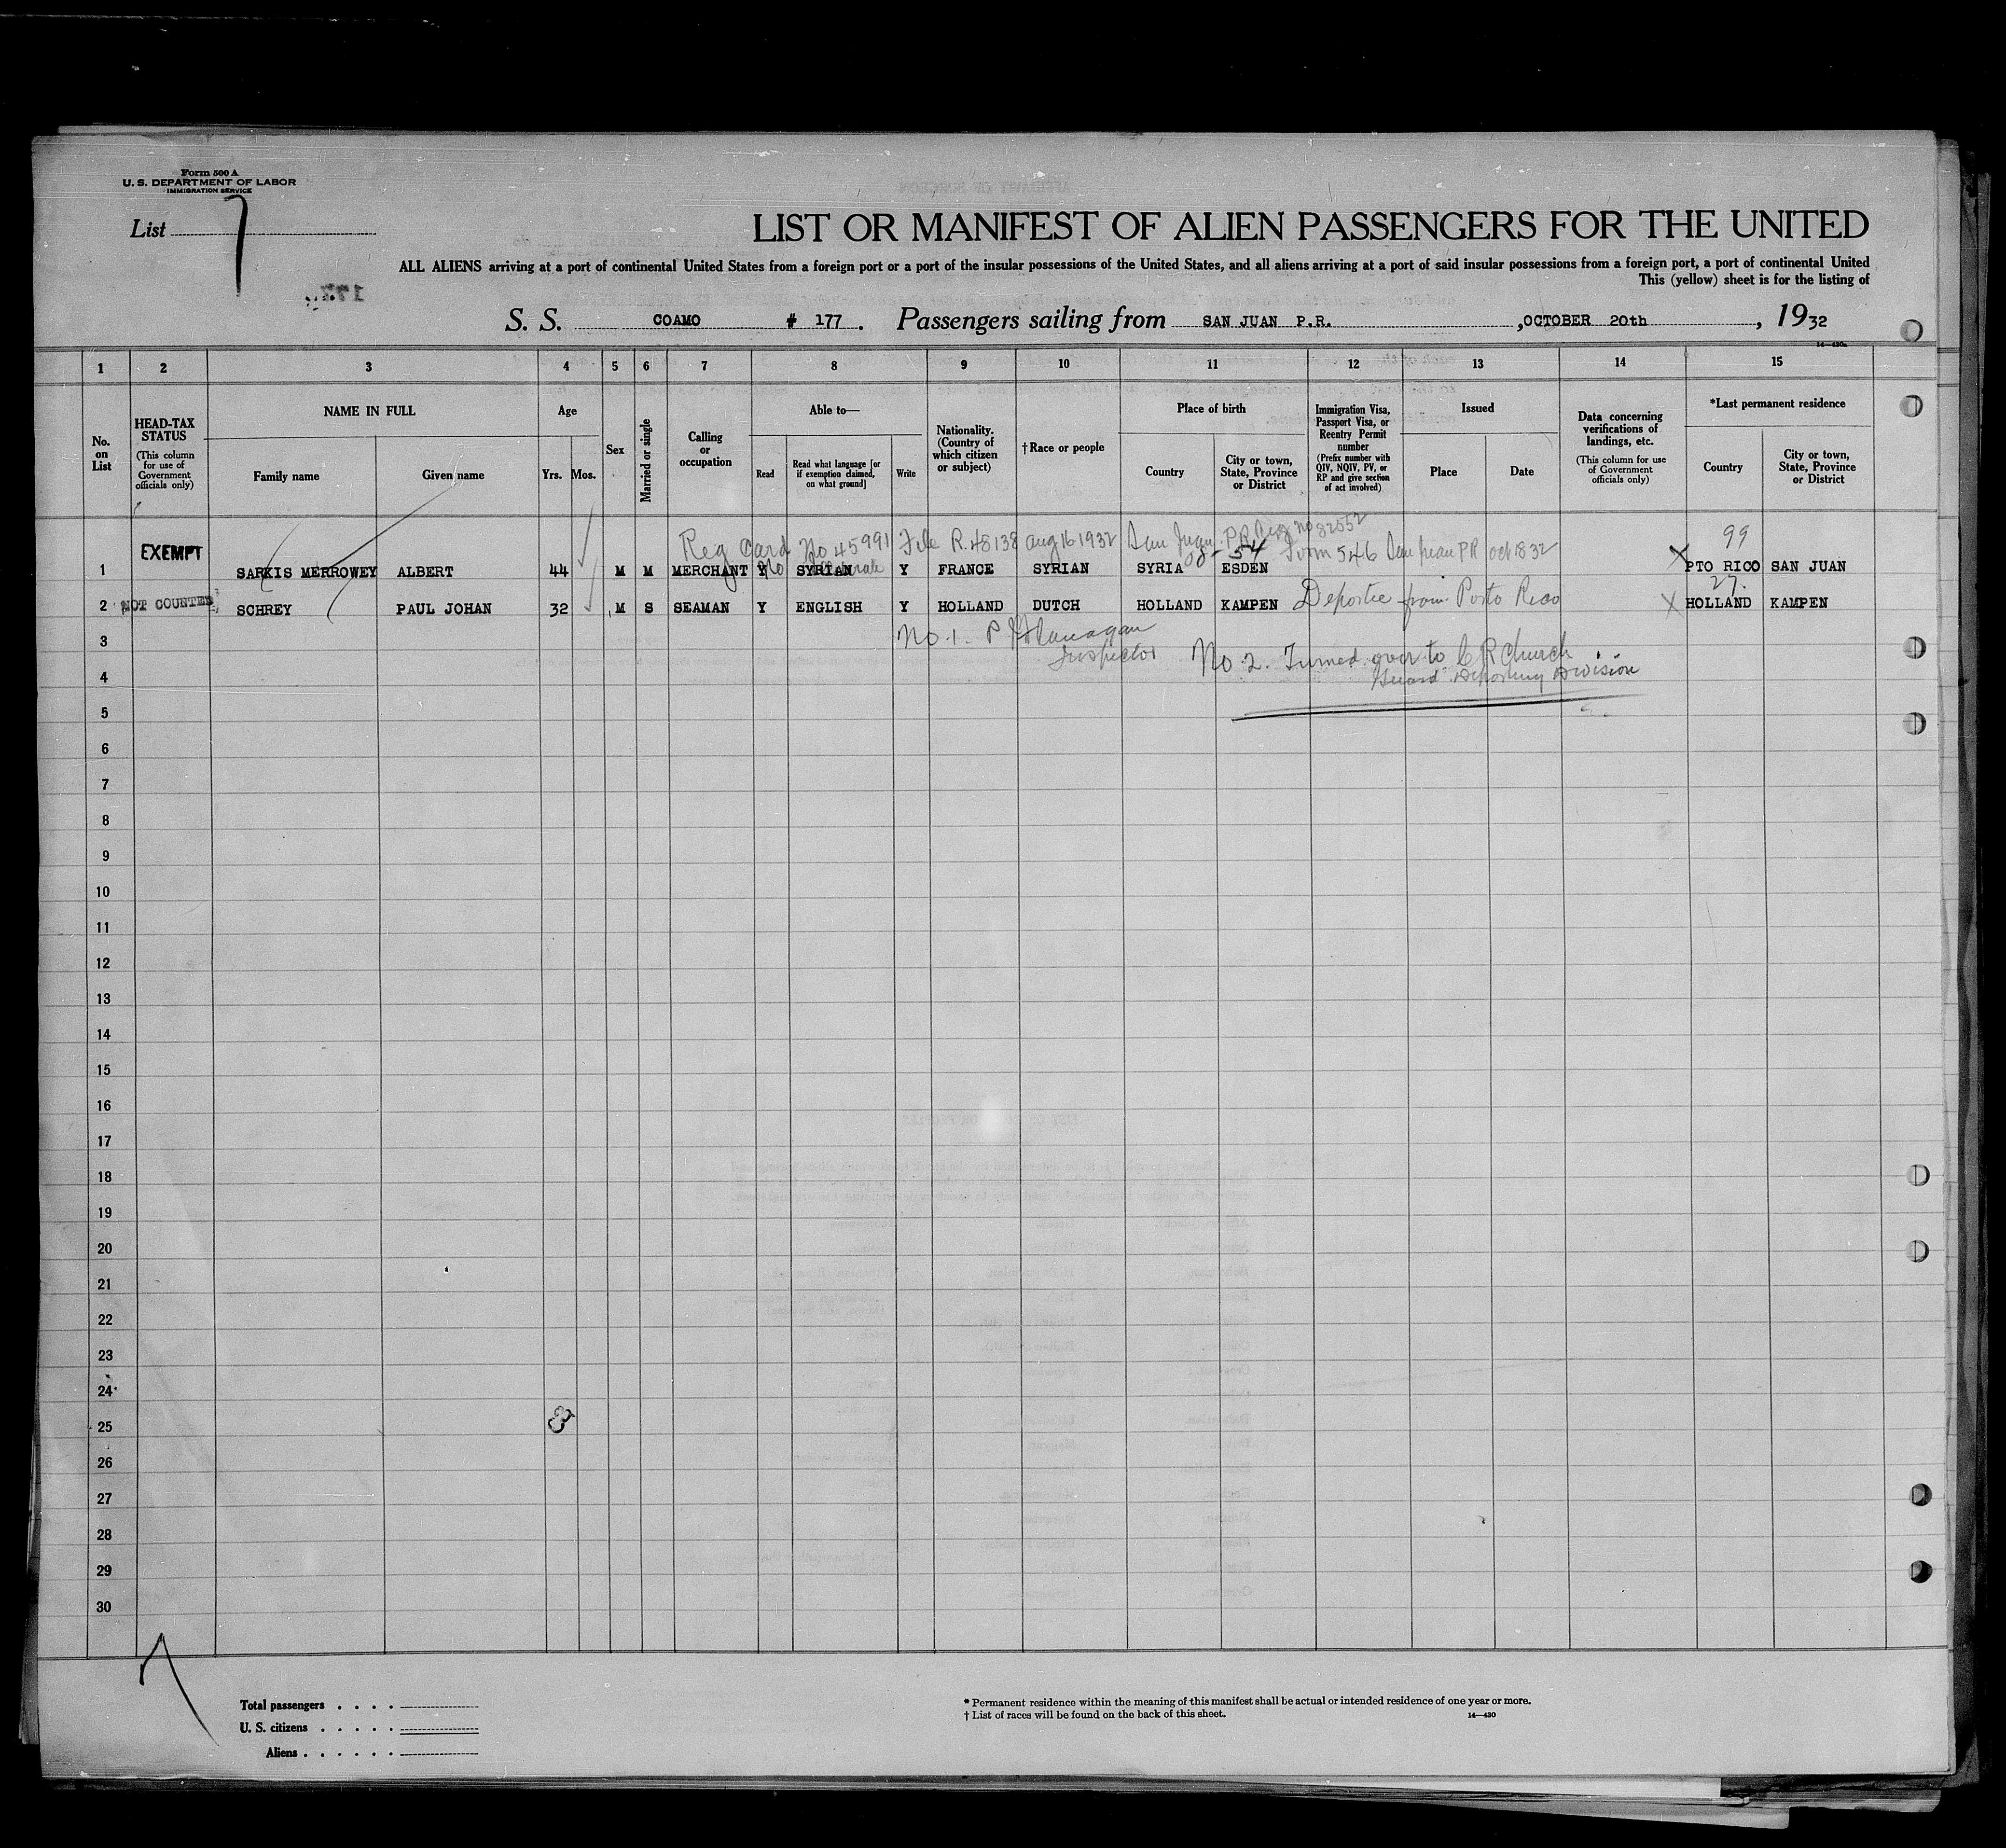 Form 500 A
U. S. DEPARTMENT OF LABOR
IMMIGRATION SERVICE
List 7
LIST OR MANIFEST OF ALIEN PASSENGERS FOR THE UNITED
ALL ALIENS arriving at a port of continental United States from a foreign port or a port of the insular possessions of the United States, and all aliens arriving at a port of said insular possessions from a foreign port, a port of continental United
This (yellow) sheet is for the listing of
S. S. COAMO # 177. Passengers sailing from SAN JUAN P.R. , OCTOBER 20th , 1932
14—430a
1 2 3 4 5 6 7 8 9 10 11 12 13 14 15
No. on List
HEAD-TAX STATUS (This column for use of Government officials only)
NAME IN FULL
Family name
Given name
Age
Yrs. Mos.
Sex
Married or single
Calling or occupation
Able to—
Read
Read what language [or if exemption claimed, on what ground]
Write
Nationality. (Country of which citizen or subject)
†Race or people
Place of birth
Country
City or town, State, Province or District
Immigration Visa, Passport Visa, or Reentry Permit number (Prefix number with QIV, NQIV, PV, or RP and give section of act involved)
Issued
Place
Date
Data concerning verifications of landings, etc. (This column for use of Government officials only)
*Last permanent residence
Country
City or town, State, Province or District
Reg Card No 45991 File R.48138 Aug 16 1932 San Juan P.R. Reg no 82552
54 Form 546 San Juan PR Oct 18 32
99
1 EXEMPT SARKIS MERROWEY ALBERT 44 M M MERCHANT Y SYRIAN Y FRANCE SYRIAN SYRIA ESDEN PTO RICO SAN JUAN
27
2 NOT COUNTED SCHREY PAUL JOHAN 32 M S SEAMAN Y ENGLISH Y HOLLAND DUTCH HOLLAND KAMPEN Deportee from Porto Rico HOLLAND KAMPEN
3 No. 1. P Flanagan
Inspector
No. 2. Turned over to C R Church
4 Guard Deporting Division
5
6
7
8
9
10
11
12
13
14
15
16
17
18
19
20
21
22
23
24
25
26
27
28
29
30
Total passengers
U. S. citizens
Aliens
* Permanent residence within the meaning of this manifest shall be actual or intended residence of one year or more.
† List of races will be found on the back of this sheet.
14—430